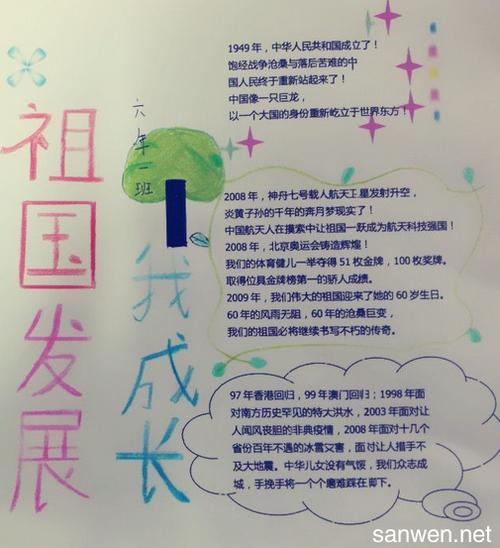 祖国发展
我成长
六年一班
1949 年，中华人民共和国成立了！
饱经战争沧桑与落后苦难的中
国人民终于重新站起来了！
中国像一只巨龙，
以一个大国的身份重新屹立于世界东方！
2008 年，神舟七号载人航天工星发射升空，
炎黄子孙的千年的奔月梦现实了！
中国航天人在摸索中让祖国一跃成为航天科技强国！
2008 年，北京奥运会铸造辉煌！
我们的体育健儿一举夺得 51 枚金牌，100 枚奖牌。
取得位具金牌榜第一的骄人成绩。
2009 年，我们伟大的祖国迎来了她的 60 岁生日。
60 年的风雨无阻，60 年的沧桑巨变，
我们的祖国必将继续书写不朽的传奇。
97 年香港回归，99 年澳门回归；1998 年面
对南方历史罕见的特大洪水，2003 年面对让
人闻风丧胆的非典疫情，2008 年面对十几个
省份百年不遇的冰雪又害，面对让人措手不
及大地震。中华儿女没有气馁，我们众志成
城，手挽手将一个个难踩在下。
sanwen.net